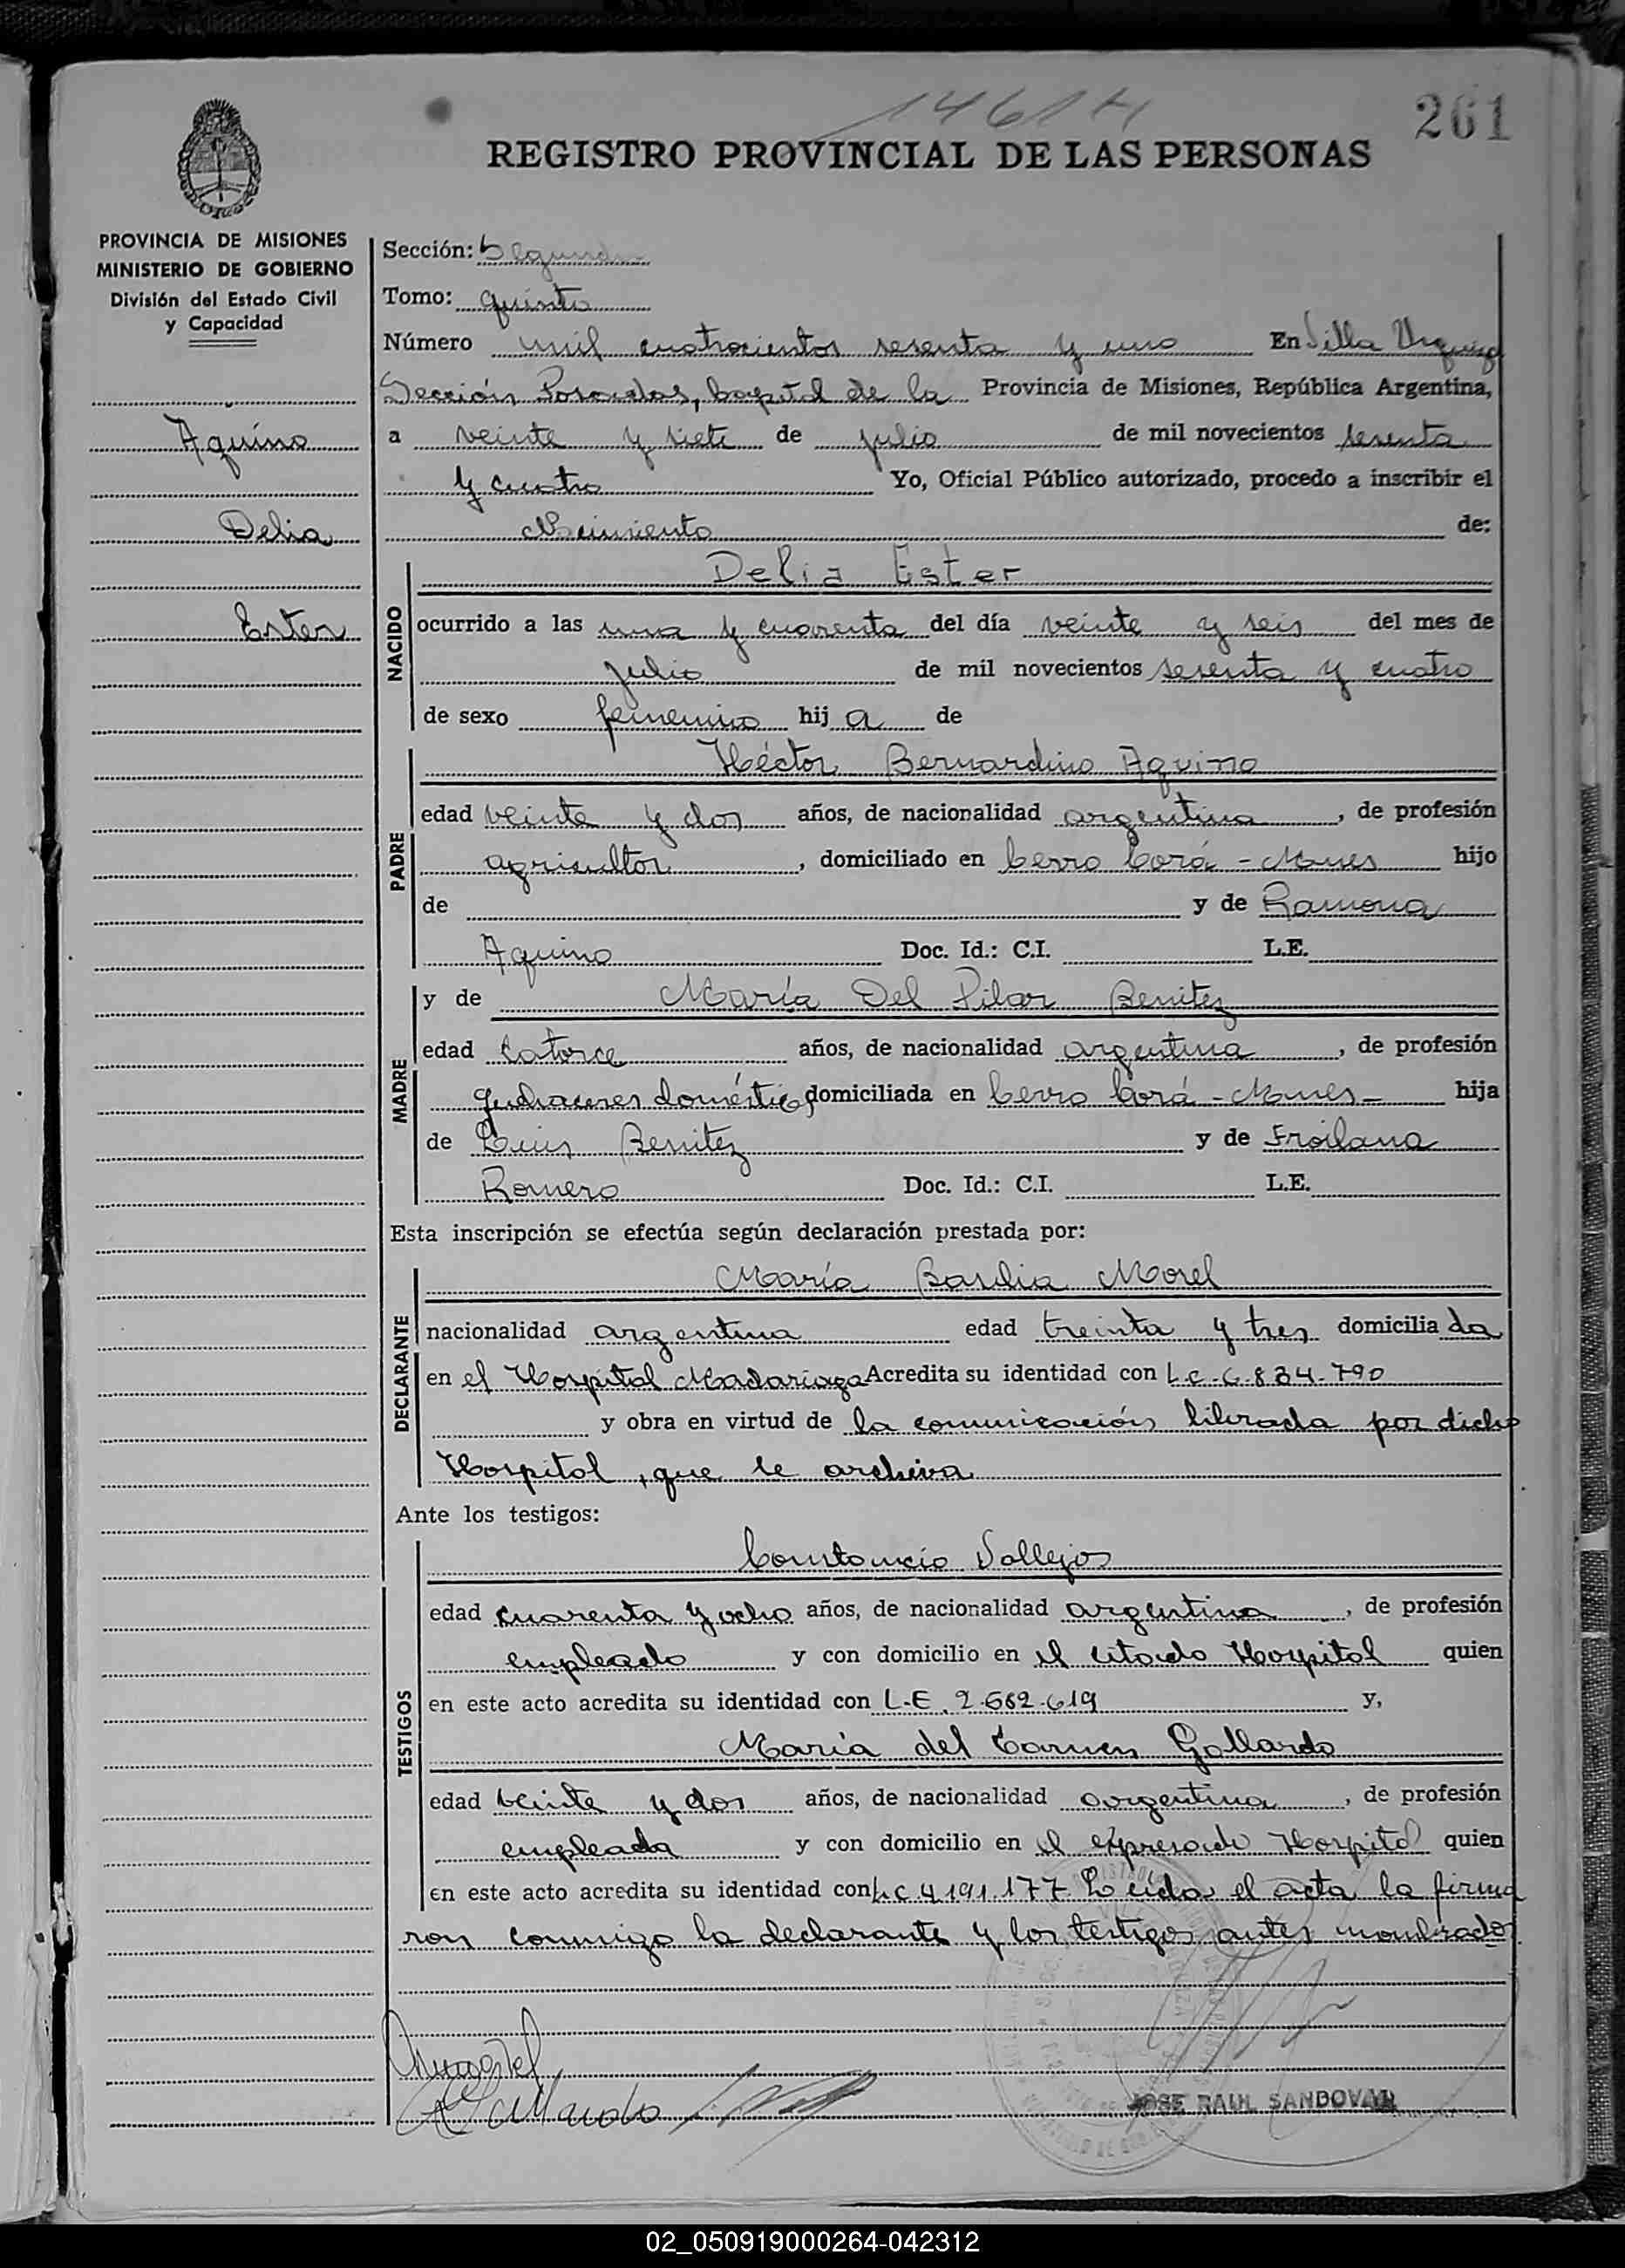 1461 H
261
REGISTRO PROVINCIAL DE LAS PERSONAS
PROVINCIA DE MISIONES
MINISTERIO DE GOBIERNO
División del Estado Civil
y Capacidad
Aquino
Delia
Ester
Sección: Segunda
Tomo: quinto
Número mil cuatrocientos sesenta y uno En Villa Urquiza
Sección Posadas, Capital de la Provincia de Misiones, República Argentina,
a veinte y siete de julio de mil novecientos sesenta
y cuatro Yo, Oficial Público autorizado, procedo a inscribir el
Nacimiento de:
NACIDO
Delia Ester
ocurrido a las una y cuarenta del día veinte y seis del mes de
julio de mil novecientos sesenta y cuatro
de sexo femenino hij a de
PADRE
Héctor Bernardino Aquino
edad veinte y dos años, de nacionalidad argentina, de profesión
agricultor, domiciliado en Cerro Corá - Mnes hijo
de y de Ramona
Aquino Doc. Id.: C.I. L.E.
MADRE
y de María Del Pilar Benitez
edad Catorce años, de nacionalidad argentina, de profesión
Quehaceres doméstico domiciliada en Cerro Corá - Mnes - hija
de Luis Benitez y de Froilana
Romero Doc. Id.: C.I. L.E.
Esta inscripción se efectúa según declaración prestada por:
DECLARANTE
María Basilia Morel
nacionalidad argentina edad treinta y tres domicilia da
en el Hospital Madariaga Acredita su identidad con L.C. 6.834.790
y obra en virtud de la comunicación librada por dicho
Hospital, que se archiva
Ante los testigos:
TESTIGOS
Constancio Vallejos
edad cuarenta y ocho años, de nacionalidad argentina, de profesión
empleado y con domicilio en el citado Hospital quien
en este acto acredita su identidad con L.E. 2.582.619 y,
María del Carmen Gallardo
edad veinte y dos años, de nacionalidad argentina, de profesión
empleada y con domicilio en el expresado Hospital quien
en este acto acredita su identidad con L.C 4.191.177 Leida el acta la firma
ron conmigo la declarante y los testigos antes nombrados
Gallardo
JOSE RAUL SANDOVAL
02_050919000264-042312